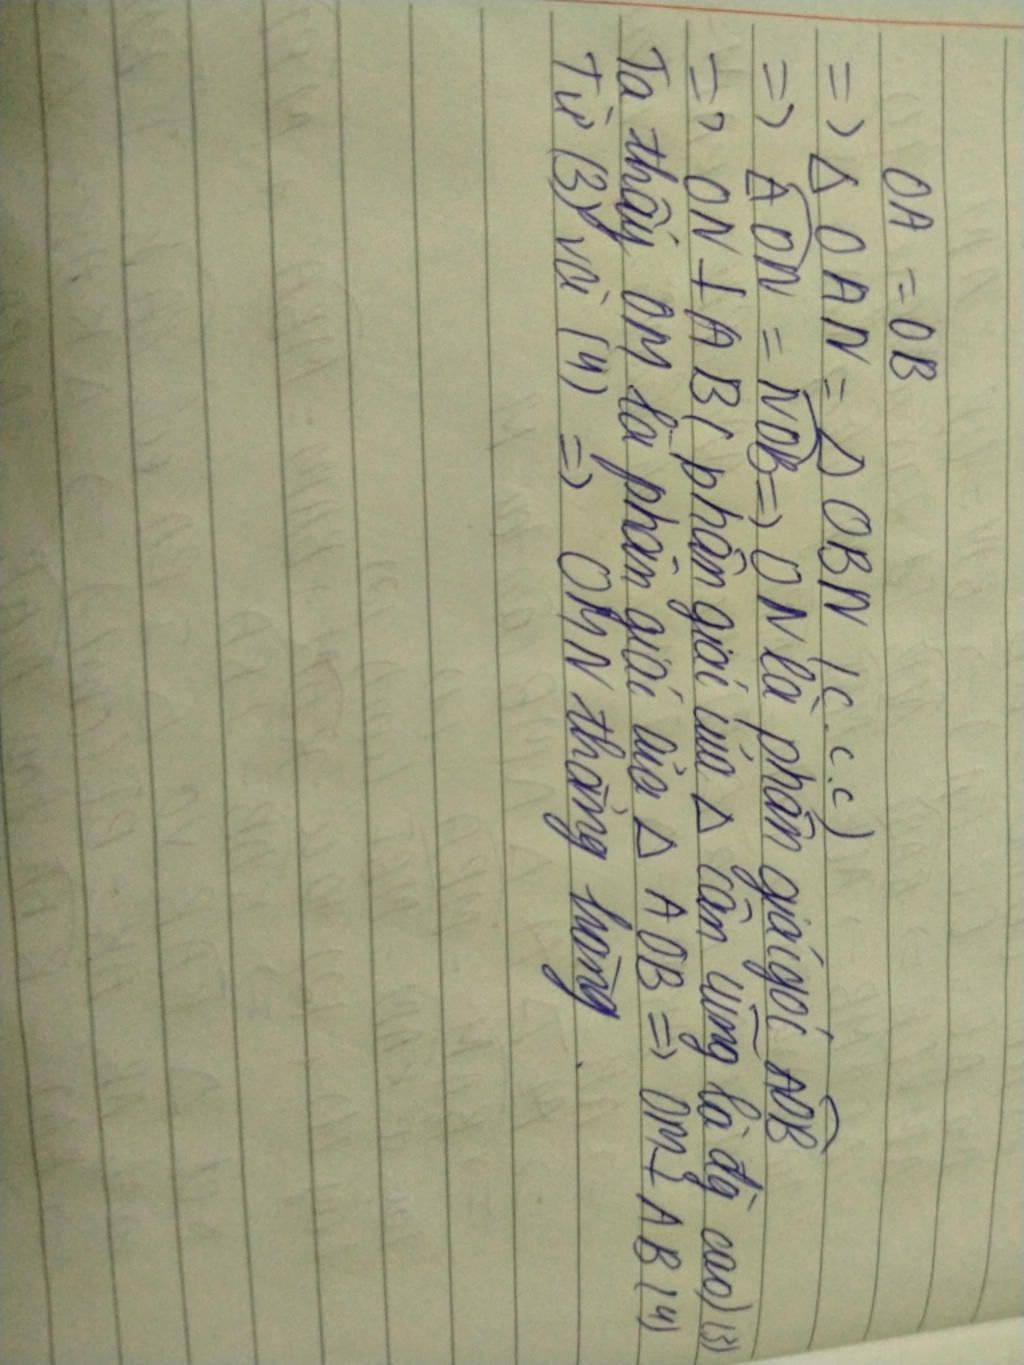 OA = OB
=> Δ OAN = Δ OBN (c.c.c)
=> AON = NOB => ON là phân giác góc AOB
=> ON ⊥ AB ( phân giác của Δ cân cũng là đg cao) (3)
Ta thấy OM là phân giác của Δ AOB => OM ⊥ AB (4)
Từ (3) với (4) => OMN thẳng hàng.